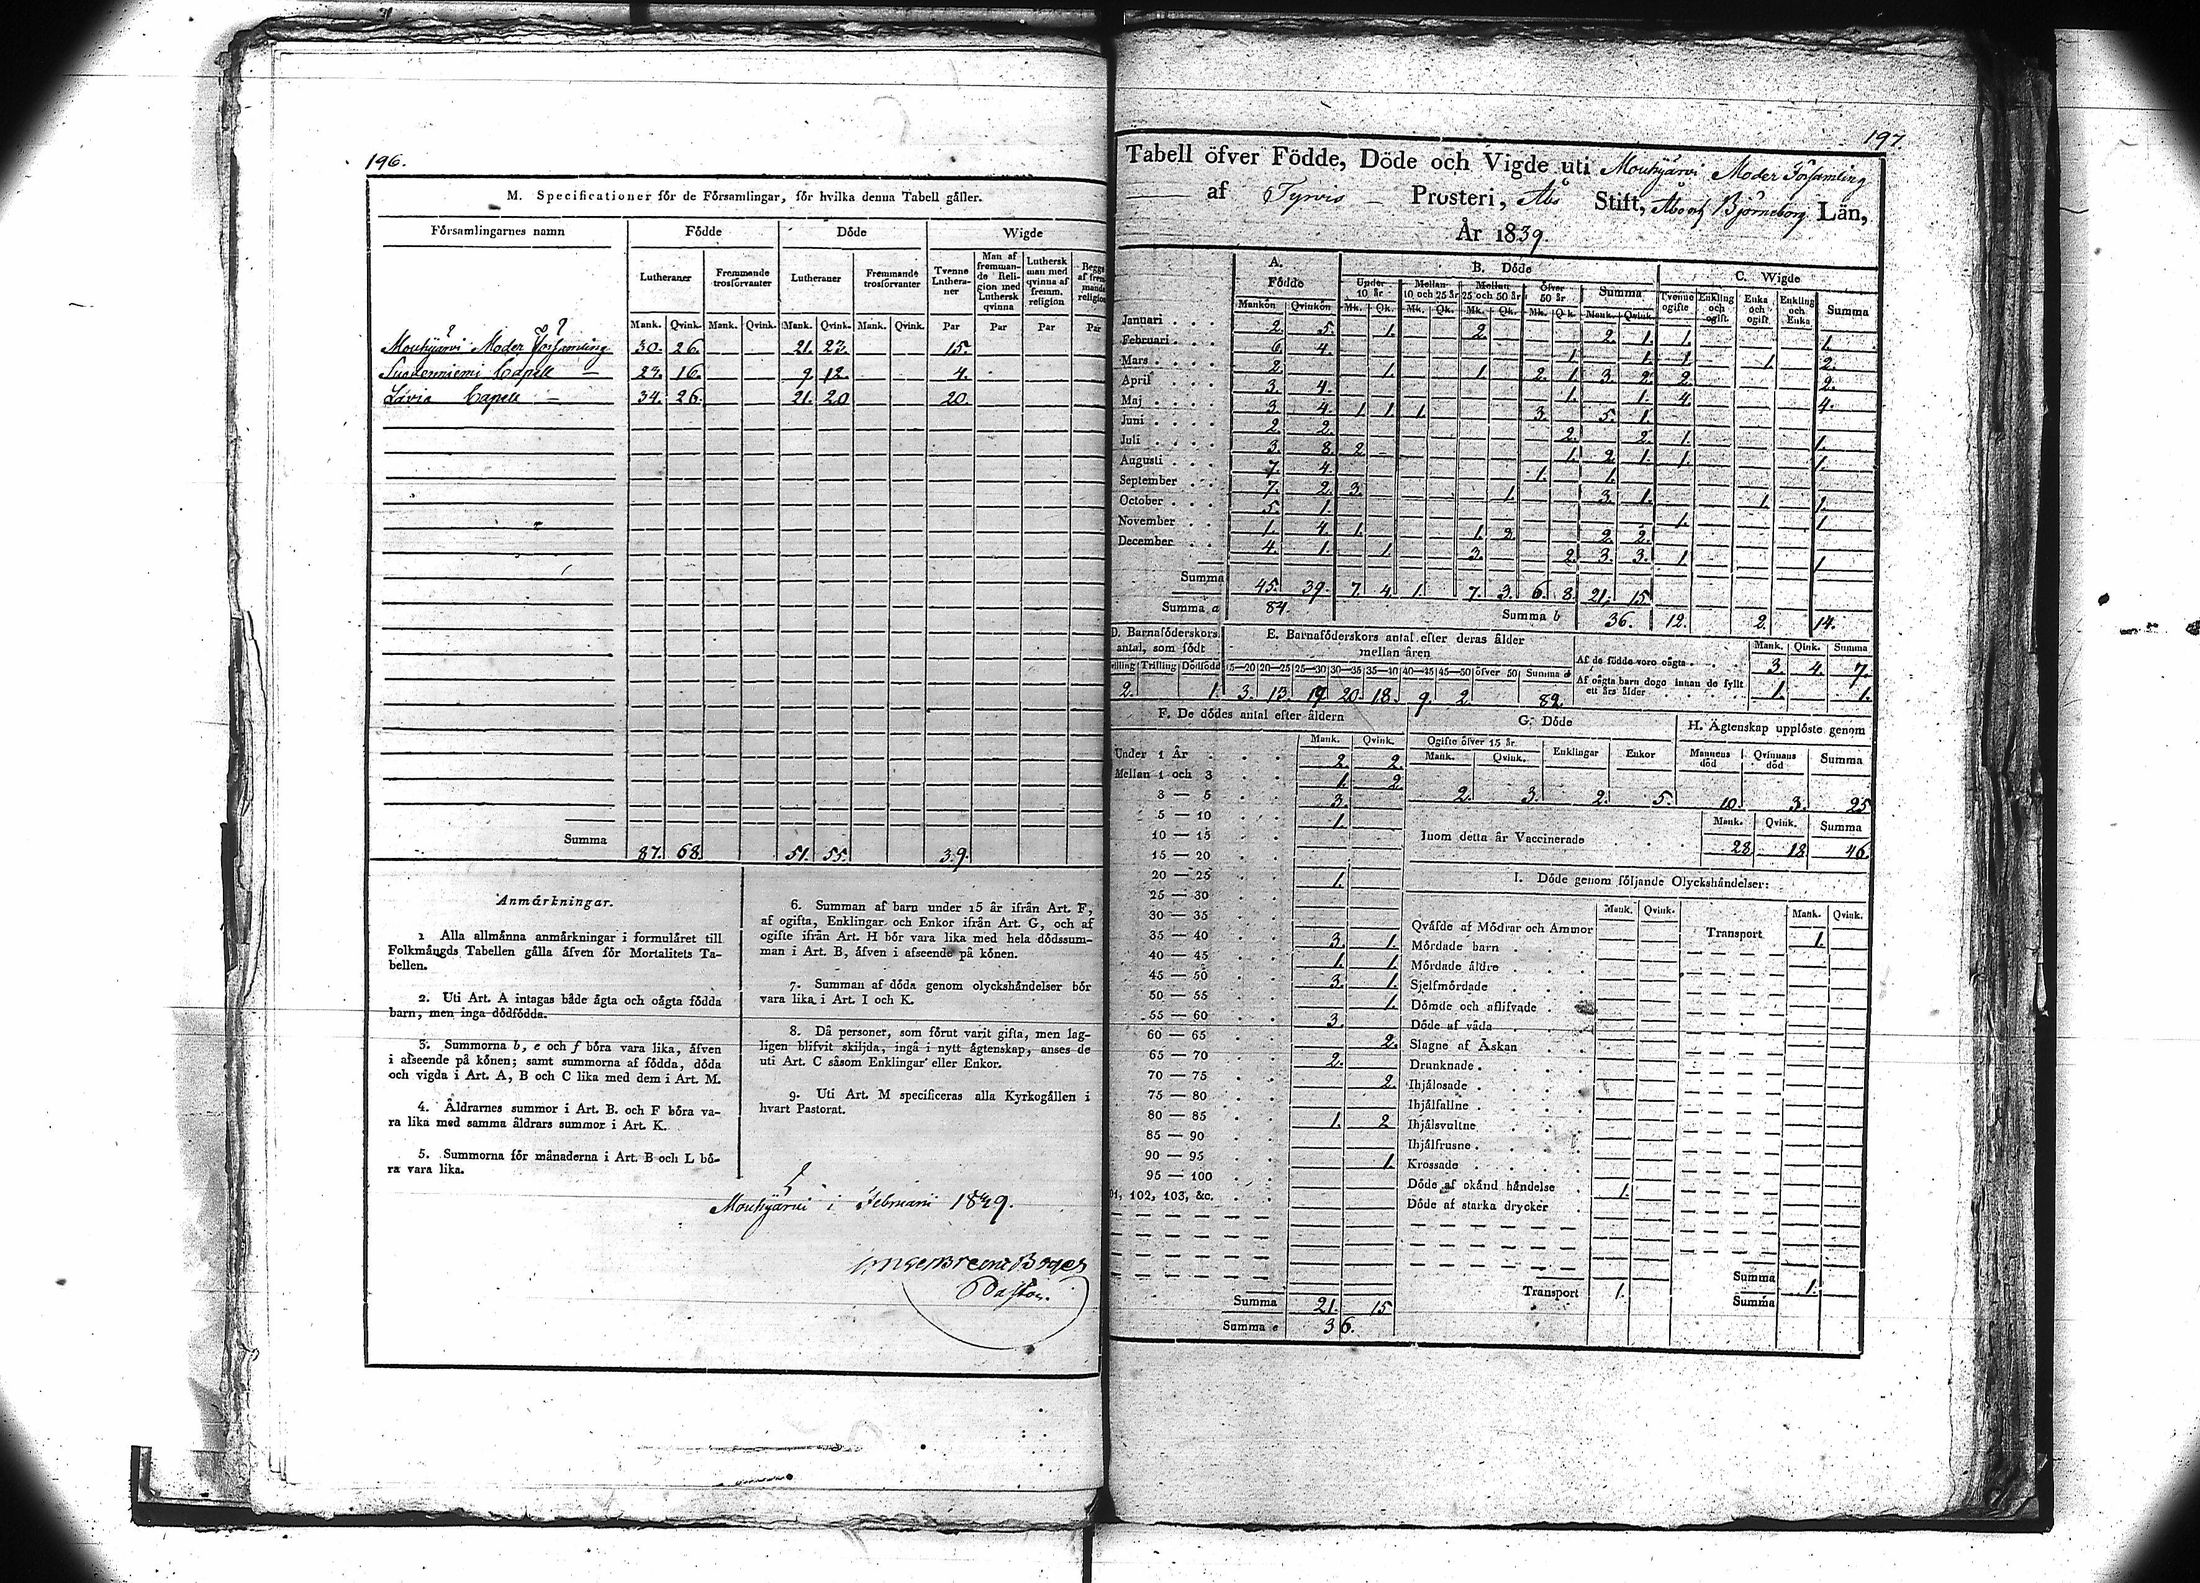 196.
M. Specificationer för de Församlingar, för hvilka denna Tabell gäller.
Församlingarnes namn | Födde | Döde | Wigde
Lutheraner | Fremmande trosförvanter | Lutheraner | Fremmande trosförvanter | Tvenne Lutheraner | Man af fremmande Religion med Luthersk qvinna | Luthersk man med qvinna af fremm. religion | Begge af fremmande religion
Mank. | Qvink. | Mank. | Qvink. | Mank. | Qvink. | Mank. | Qvink. | Par | Par | Par | Par
Mouhijärvi Moder Församling 30. 26. 21. 23. 15.
Suodenniemi Capell 23. 16. 9. 12. 4.
Lavia Capell 34. 26. 21. 20 20.
Summa 87. 68. 51. 55. 39.
Anmärkningar.
1 Alla allmänna anmärkningar i formuläret till
Folkmängds Tabellen gälla äfven för Mortalitets Ta-
bellen.
2. Uti Art. A intagas både ägta och oägta födda
barn, men inga dödfödda.
3. Summorna b, e och f böra vara lika, äfven
i afseende på könen; samt summorna af födda, döda
och vigda i Art. A, B och C lika med dem i Art. M.
4. Åldrarnes summor i Art. B. och F böra va-
ra lika med samma åldrars summor i Art. K.
5. Summorna för månaderna i Art. B och L bö-
ra vara lika.
6. Summan af barn under 15 år ifrån Art. F,
af ogifta, Enklingar och Enkor ifrån Art. G, och af
ogifte ifrån Art. H bör vara lika med hela dödssum-
man i Art. B, äfven i afseende på könen.
7. Summan af döda genom olyckshändelser bör
vara lika i Art. I och K.
8. Då personer, som förut varit gifta, men lag-
ligen blifvit skiljda, ingå i nytt ägtenskap, anses de
uti Art. C såsom Enklingar eller Enkor.
9. Uti Art. M specificeras alla Kyrkogällen i
hvart Pastorat.
Mouhijärvi i Februarii
Pastor.
197
Tabell öfver Födde, Döde och Vigde uti Mouhijärvi Moder Församling
af Tyrvis Prosteri, Åbo Stift, Åbo och Björneborg Län,
År 1839.
A. Födde | B. Döde | C. Wigde
Under 10 år | Mellan 10 och 25 år | Mellan 25 och 50 år | Öfver 50 år | Summa | Tvenne ogifte | Enkling och ogift | Enka och ogift | Enkling och Enka | Summa
Mankön | Qvinkön | Mk. | Qk. | Mk. | Qk. | Mk. | Qk. | Mk. | Qk. | Mank. | Qvink.
Januari 2. 5. 1. 2. 2. 1. 1. 1.
Februari 6. 4. 1. 1. 1. 1. 2.
Mars 2. 1. 1. 2. 1. 3. 2. 2. 2.
April 3. 4. 1. 1. 4. 4.
Maj 3. 4. 1. 1. 1. 3. 5. 1.
Juni 2. 2. 2. 2. 1. 1.
Juli 3. 8. 2. 1. 2. 1. 1. 1.
Augusti 7. 4. 1. 1.
September 7. 2. 3. 1. 3. 1. 1. 1.
October 5. 1. 1. 1.
November 1. 4. 1. 1. 2. 2. 2.
December 4. 1. 1. 3. 2. 3. 3. 1. 1
Summa 45. 39. 7. 4. 1. 7. 3. 6. 8. 21. 15.
Summa a 84. Summa b 36. 12. 2. 14.
D. Barnaföderskors antal, som födt
Trilling | Dödfödd
2. 1.
E. Barnaföderskors antal efter deras ålder
mellan åren
15—20 | 20—25 | 25—30 | 30—35 | 35—40 | 40—45 | 45—50 | öfver 50 | Summa d
3. 13. 17 20. 18. 9. 2. 82.
Mank. | Qink. | Summa
Af de födde voro oägta 3. 4. 7.
Af oägta barn dogo innan de fyllt
ett års ålder 1. 1.
F. De dödes antal efter åldern
Mank. | Qvink.
Under 1 År 2. 2.
Mellan 1 och 3 1. 2.
3 — 5 3.
5 — 10 1.
10 — 15
15 — 20
20 — 25 1.
25 — 30
30 — 35
35 — 40 3. 1.
40 — 45 1. 1.
45 — 50 3. 1.
50 — 55 1.
55 — 60 3.
60 — 65 2.
65 — 70 2.
70 — 75 2.
75 — 80
80 — 85 1. 2
85 — 90
90 — 95 1.
95 — 100
101, 102, 103, &c.
Summa 21. 15
Summa e 36.
G. Döde
Ogifte öfver 15 år | Enklingar | Enkor
Mank. | Qvink.
2. 3. 2. 5.
H. Ägtenskap upplöste genom
Mannens död | Qvinnans död | Summa
10. 3. 25
Mank. | Qvink. | Summa
Inom detta år Vaccinerade 28. 18. 46.
I. Döde genom följande Olyckshändelser:
Mank. | Qvink. | Mank. | Qvink.
Qväfde af Mödrar och Ammor
Mördade barn
Mördade äldre
Sjelfmördade
Dömde och aflifvade
Döde af våda
Slagne af Åskan
Drunknade
Ihjälosade
Ihjälfallne
Ihjälsvultne
Ihjälfrusne
Krossade
Döde af okänd händelse 1.
Döde af starka drycker
Transport 1.
Transport 1.
Summa 1.
Summa